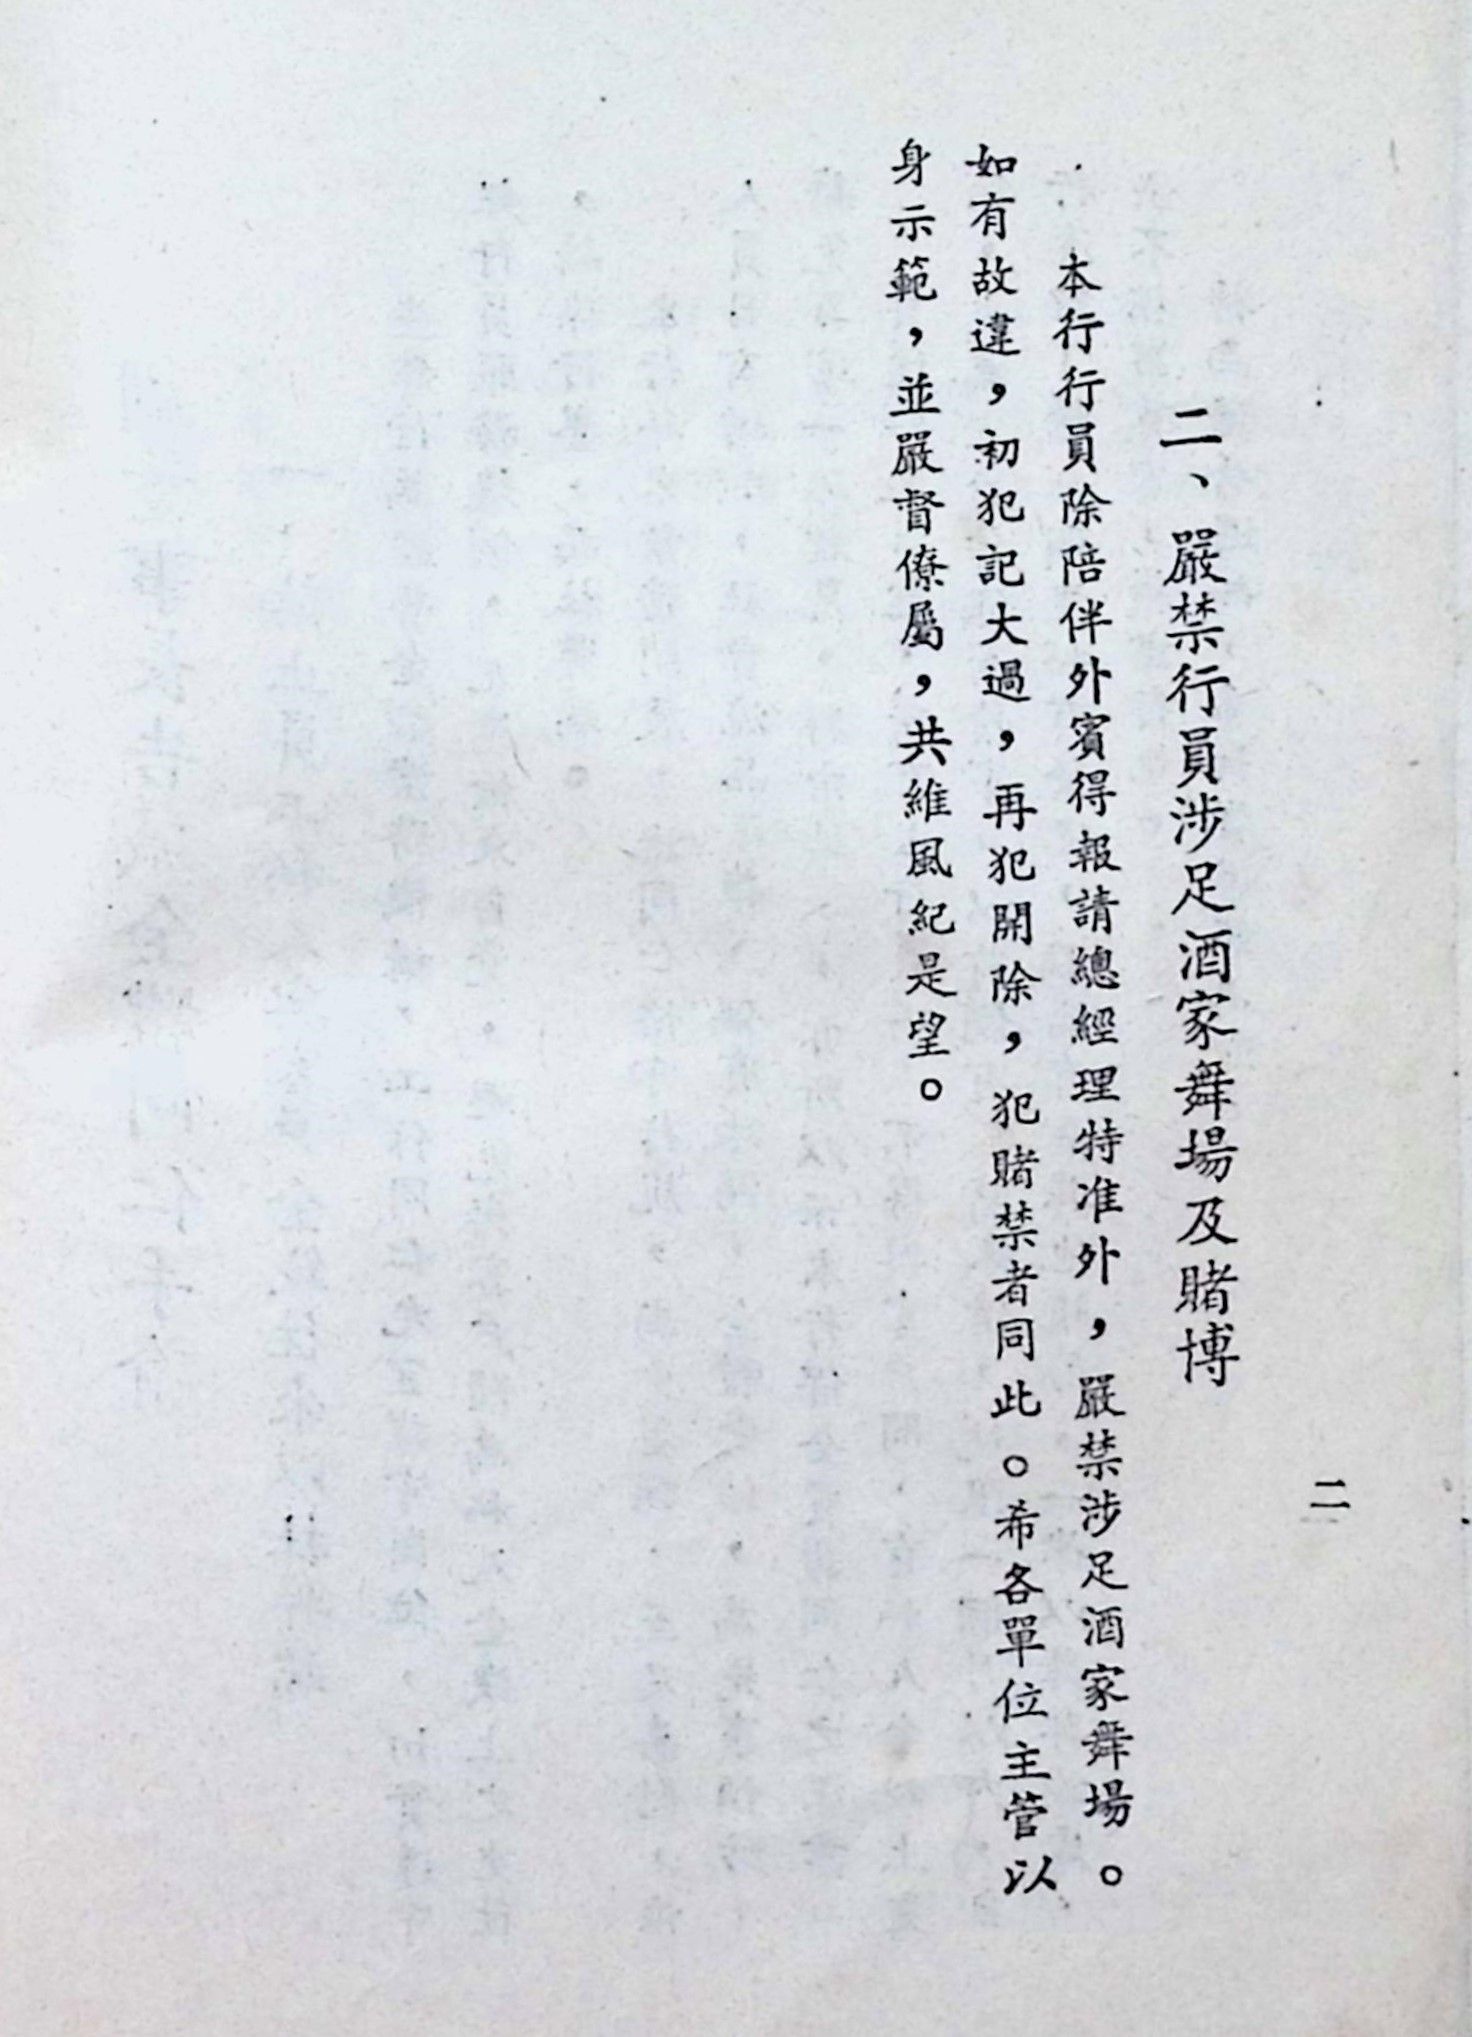 二
二、嚴禁行員涉足酒家舞場及賭博
本行行員除陪伴外賓得報請總經理特准外，嚴禁涉足酒家舞場。
如有故違，初犯記大過，再犯開除，犯賭禁者同此。希各單位主管以
身示範，並嚴督僚屬，共維風紀是望。